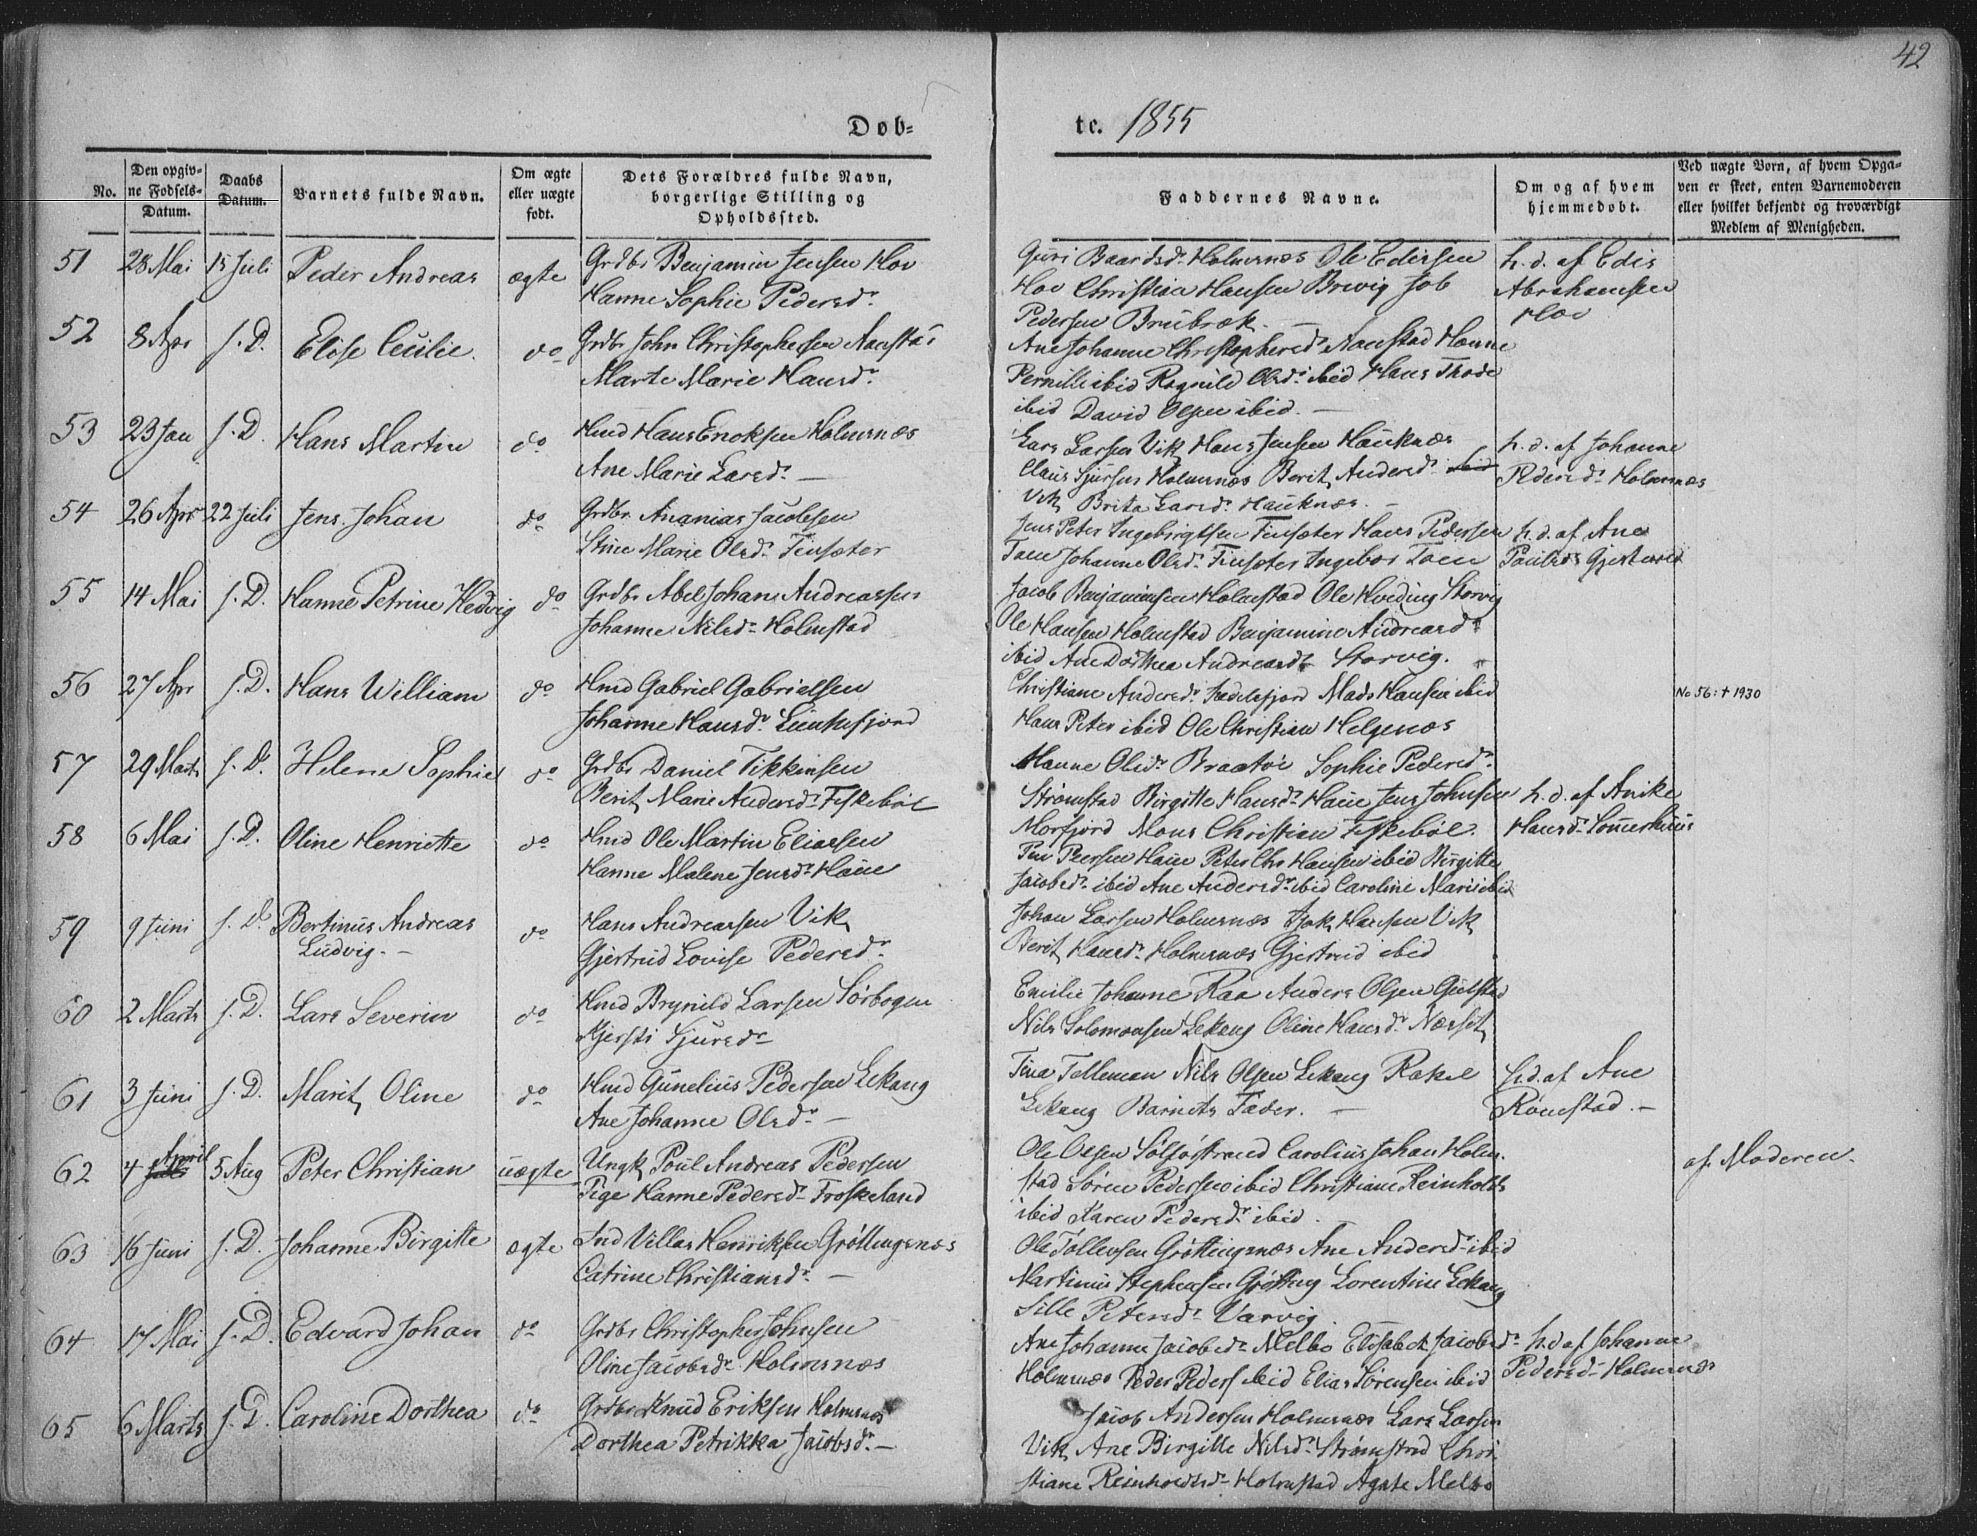 42
Døb-
te. 1855
No.
Den opgiv-
ne Fødsels-
Datum.
Daabs
Datum.
Barnets fulde Navn.
Om ægte
eller uægte
født.
Dets Forældres fulde Navn,
borgerlige Stilling og
Opholdssted.
Faddernes Navne.
Om og af hvem
hjemmedøbt.
Ved uægte Børn, af hvem Opga-
ven er skeet, enten Barnemoderen
eller hvilket bekjendt og troværdigt
Medlem af Menigheden.
51 28 Mai 15 Juli Peder Andreas ægte Grdbr Benjamin Jensen Hov
Hanne Sophie Pedersd.
Guri Baardsd. Holmsnæs Ole Edissen
Hov Christian Hansen Brevig Job
Pedersen Brubræk.
h. d. af Edis
Abrahamsen
Hov
52 8 Apr s. D. Elise Cecilie do Grdbr John Christophersen Naustad
Marte Marie Hansd.
Ane Johanne Christophersd. Naustad Hanne
Pernille ibid Ragnild Olsd. ibid Hans Thode
ibid David Olsen ibid.
53 23 Jan s. D. Hans Martin do Hmd Hans Enoksen Holmsnæs
Ane Marie Larsd.
Lars Larsen Vik Hans Jensen Hauknæs
Claus Sjursen Holmsnæs Berit Andersd. ibid
Vik Brita Larsd. Hauknæs.
h. d. af Johanne
Pedersd. Holmsnæs
54 26 Apr 22 Juli Jens Johan do Grdbr. Ananias Jacobsen
Stine Marie Olsd. Finsæter
Jens Peter Ingebrigtsen Finsæter Hans Pedersen
Taen Johanne Olsd. Finsæter Ingebor Taen
h. d. af Ane
Paulsd.
55 14 Mai s. D. Hanne Petrine Hedvig do Grdbr Abel Johan Andreassen
Johanne Nilsd. Holmstad
Jacob Benjaminsen Holmstad Ole Hveding Storvig
Ole Hansen Holmstad Benjamine Andreasd.
ibid Ane Dorthea Andreasd. Storvig.
56 27 Apr s. D. Hans William do Hmd Gabriel Gabrielsen
Johanne Hansd.
Christiane Andersd. Mads Hansen ibid
Hans Peter ibid Ole Christian Helgenæs
No 56: † 1930
57 29 Marts s. D. Helene Sophie do Grdbr Daniel Tikkinsen
Berit Marie Andersd. Fiskebøl
Hanne Olsd. Braatøi Sophie Pedersd.
Strømstad Birgitte Hansd. Haue Jens Johnsen
Morfjord Mons Christian Fiskebøl.
h. d. af Anike
Hansd.
58 6 Mai s. D. Oline Henriette do Hmd Ole Martin Eliassen
Hanne Malene Jensd. Haue
Peersen Haue Peter Chr Hansen ibid Birgitte
Jacobsd. ibid Ane Andersd. ibid Caroline Marie ibid
59 9 Juni s. D. Bertinus Andreas
Ludvig. do Hans Andreassen Vik
Gjertrud Lovise Pedersd.
Johan Larsen Holmsnæs Isak Hansen Vik
Berit Hansd. Holmsnæs Gjertrud ibid
60 2 Marts s. D. Lars Severin do Hmd Brynild Larsen Sørbogen
Kjersti Sjursd.
Emilie Johanne Raa Anders Olsen Gulstad
Nils Solomonsen Lekang Oline Hansd.
61 3 Juni s. D. Marit Oline do Hmd Gunelius Pedersen Lekang
Ane Johanne Olsd.
Tina Telleman Nils Olsen Lekang Rakel
Lekang Barnets Fader.
h. d. af Ane
Rømstad.
62 4 April 5 Aug Peter Christian uægte Ungk. Poul Andreas Pedersen
Pige Hanne Pedersd. Froskeland
Ole Olsen Carolius Johan Holm-
stad Søren Pedersen ibid Christiane Reinholts
ibid Karen Pedersd. ibid.
af Moderen.
63 16 Juni s. D. Johanne Birgitte ægte Ind Villas Henriksen Grøttingsnæs
Catrine Christiansd.
Ole Tollevsen Grøttingsnæs Ane Andersd. ibid
Martinus Stephensen Grøtting Lorentine Lekang
Sille Petersd. Varvig.
64 17 Mai s. D. Edvard Johan do Grdbr Christopher Johnsen
Oline Jacobsd. Holmsnæs
Ane Johanne Jacobsd. Melbo Elisabeth Jacobsd.
Holmsnæs Peder Peders ibid Elias Sørensen ibid
h. d af Johanne
Pedersd. Holmsnæs
65 6 Marts s. D. Caroline Dorthea do Grdbr Knud Eriksen Holmsnæs
Dorthea Petrikka Jacobsd.
Jacob Andersen Holmsnæs Lars Larsen
Vik Ane Birgitte Nilsd. Strømstad Chri-
stiane Reinholdtsd. Holmstad Agate Melbo